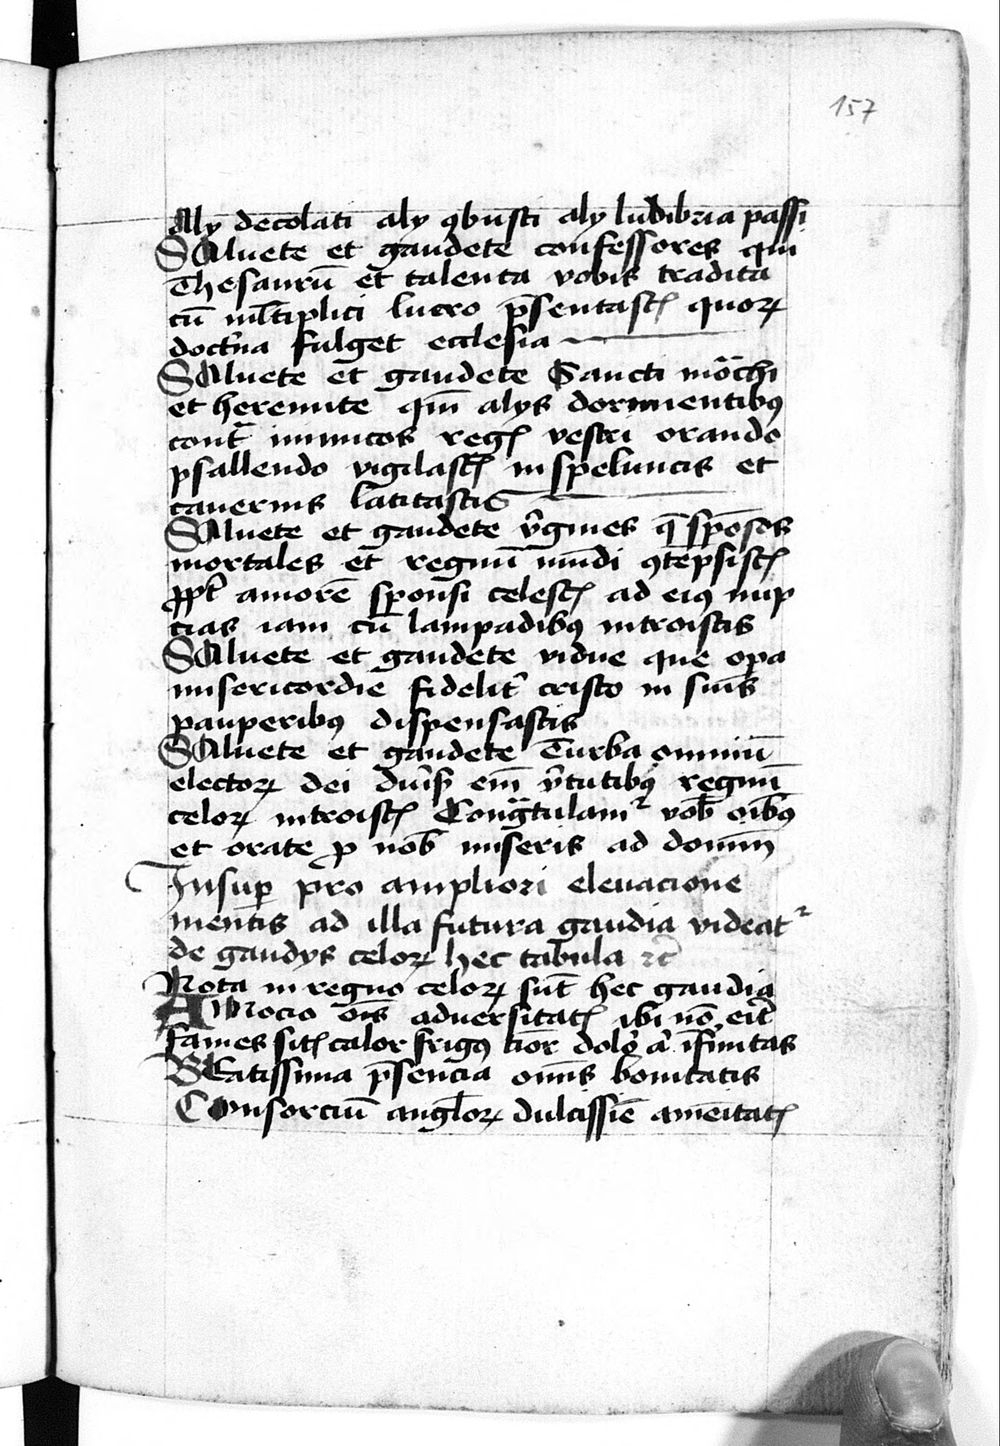 157
Aly decolati aly ꝯbusti aly ludibria passi
SAluete et gaudete confessores qui
Thesaurū et talenta vobis tradita
cū ml̄tiplici lucro p̄sentastꝭ quoꝝ
doctⁱna fulget ecclesia
SAluete et gaudete Sancti mōchi
et heremite qm̄ alys dormientibꝰ
contᵃ inimicos regꝭ vestri orando
psallendo vigilastꝭ in speluncis et
cauernis latitastis
SAluete et gaudete v̓gines q̄ spōsos
mortales et regnū mūdi ꝯtēpsistꝭ
ꝓpt̓ amorē sponsi celestꝭ ad eiꝰ nup
cias iam cū lampadibꝰ introistis
SAluete et gaudete vidue que oꝑa
misericordie fidelit̓ cristo in suis
pauperibꝰ dispensastis
SAluete et gaudete Turba omniū
electoꝝ dei diu̓sꝭ em̄ v̓tutibꝰ regnū
celoꝝ introistꝭ Congᵃtulamᷣ vob̄ oībꝰ
et orate ꝓ nob̄ miseris ad dominū
Insuꝑ pro ampliori eleuacione
mentis ad illa futura gaudia videatᷣ
de gaudys celoꝝ hec tabula ⁊c̄
Nota in regno celoꝝ sūt hec gaudia
AMocio om̄s aduersitatꝭ ibi nō eit̓
fames sitꝭ calor frigꝰ tior̄ dolor̓ a̓ īfirmitas
BEatissima p̄sencia omīs bonitatis
COnsorciū angl̓oꝝ dulcissīe amenitatꝭ